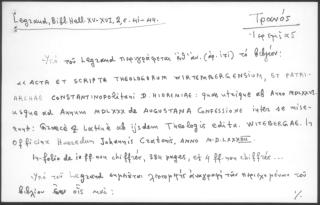 Legrand, Bibl. Hell. XV-XVI, 2, σ. 41-44.
Τρανός
Ἱερεμίας
Ὑπὸ τοῦ Legrand περιγράφεται ἐδῶ τὸ βιβλίον:
«ACTA ET SCRIPTA THEOLOGORUM WIRTEMBERGENSIUM, ET PATRI-
ARCHAE CONSTANTINOPOLITANI D. HIEREMIAE: quae utrique ab Anno MDLXXVI
usque ad Annum MDLXXXI de AUGUSTANA Confessione inter se mise-
runt: Graecè & Latinè ab ijsdem Theologis edita. WITEBERGAE. In
Officina Haeredum Johannis Cratonis, ANNO M.D.LXXXIIII.
In-folio de 10 ff. non chiffrés, 384 pages, et 4 ff. non chiffrés...
Ὑπὸ τοῦ Legrand λεπτομερὴς ἀναγραφὴ τῶν περιεχομένων τοῦ
βιβλίου ὡς ἑξῆς: